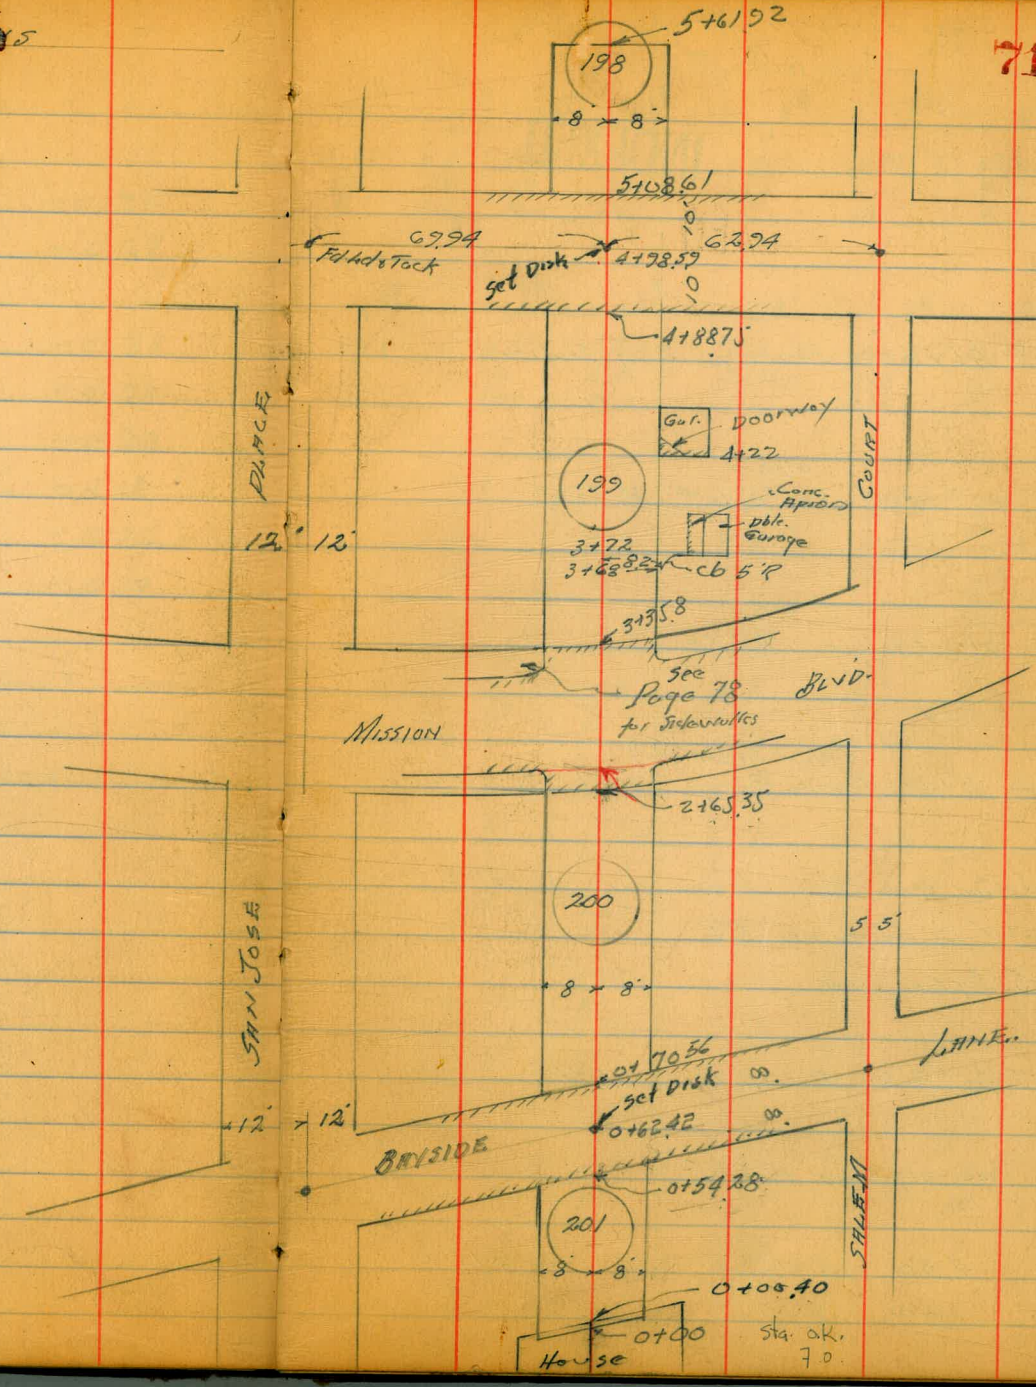 5+61.92
71
198
8' 8'
5+08.61
69.94
62.94
Fd Ld & Tack
set Disk
4+98.59
10'
10
4+88.75
Gar.
DOORWAY
4+22
PLACE
COURT
199
Conc.
Apron
Dble.
Garage
12' 12'
3+72
3+68
8.2
cb 5'R
3+35.8
see
Page 78
for Sidewalks
BLVD.
MISSION
2+65.35
200
5 5'
SAN JOSE
8 8'
0+70.56
LANE.
set Disk
8'
8'
12' 12'
0+62.42
BAYSIDE
0+54.28
SALEM
201
8' 8'
0+00.40
0+00
Sta. o.k.
House